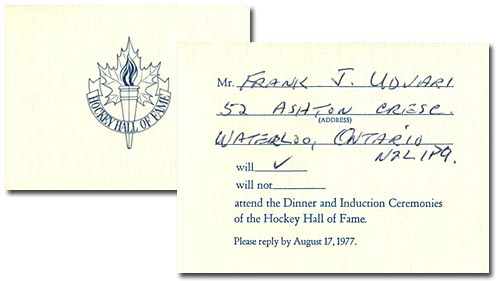 HOCKEY HALL OF FAME
Mr. FRANK J. UDVARI
52 ASHTON CRESC.
(ADDRESS)
WATERLOO, ONTARIO
N2L 1P9.
will ✓
will not
attend the Dinner and Induction Ceremonies
of the Hockey Hall of Fame.
Please reply by August 17, 1977.